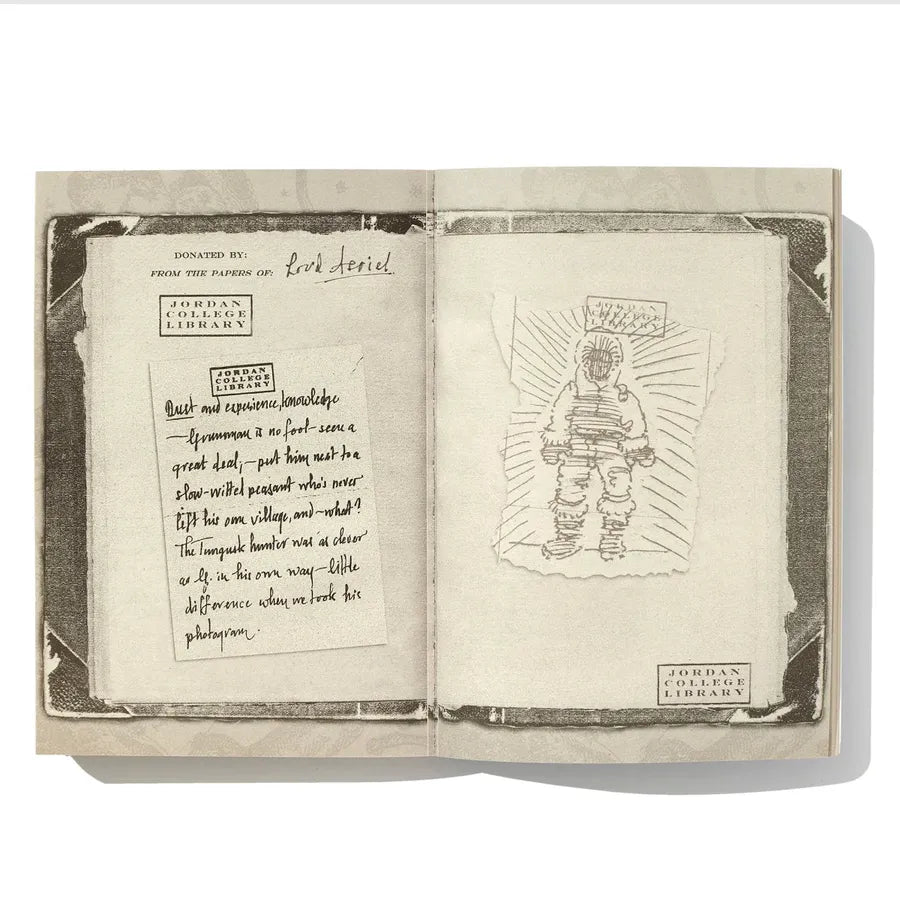 DONATED BY:
FROM THE PAPERS OF: Lord Asriel
JORDAN
COLLEGE
LIBRARY
JORDAN
COLLEGE
LIBRARY
Dust and experience, knowledge
—Grumman is no fool—seen a
great deal,—put him next to a
slow-witted peasant who's never
left his own village, and—what?
The Tungusk hunter was as clever
as G. in his own way—little
difference when we took his
photogram.
JORDAN
COLLEGE
LIBRARY
JORDAN
COLLEGE
LIBRARY